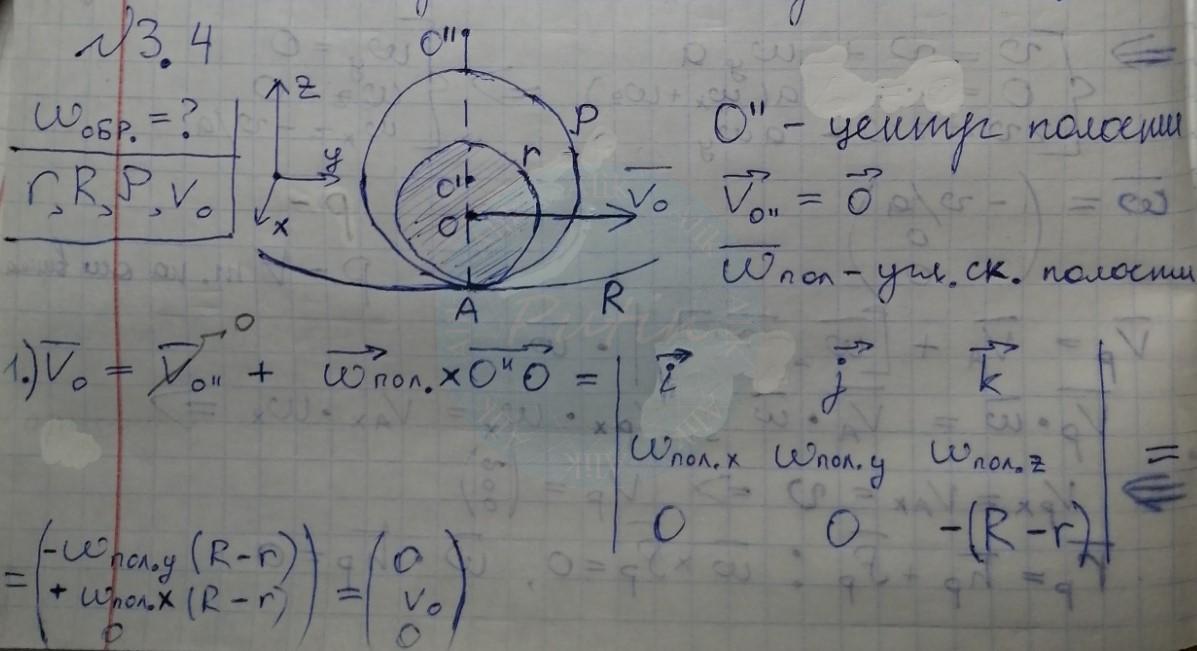 √3. 4
ω_ОБР. = ?
r, R, P, V_0
z
y
x
O''
O'
O
P
r
V_0
A
R
O'' - центр полости
V_O'' = 0
ω_пол - угл. ск. полости
1.) V_0 = V_O'' → 0 + ω_пол. × O''O = | i j k |
ω_пол.x ω_пол.y ω_пол.z
0 0 -(R-r) | =
= ( -ω_пол.y (R-r) ) = ( 0 )
+ ω_пол.x (R-r) V_0
0 0